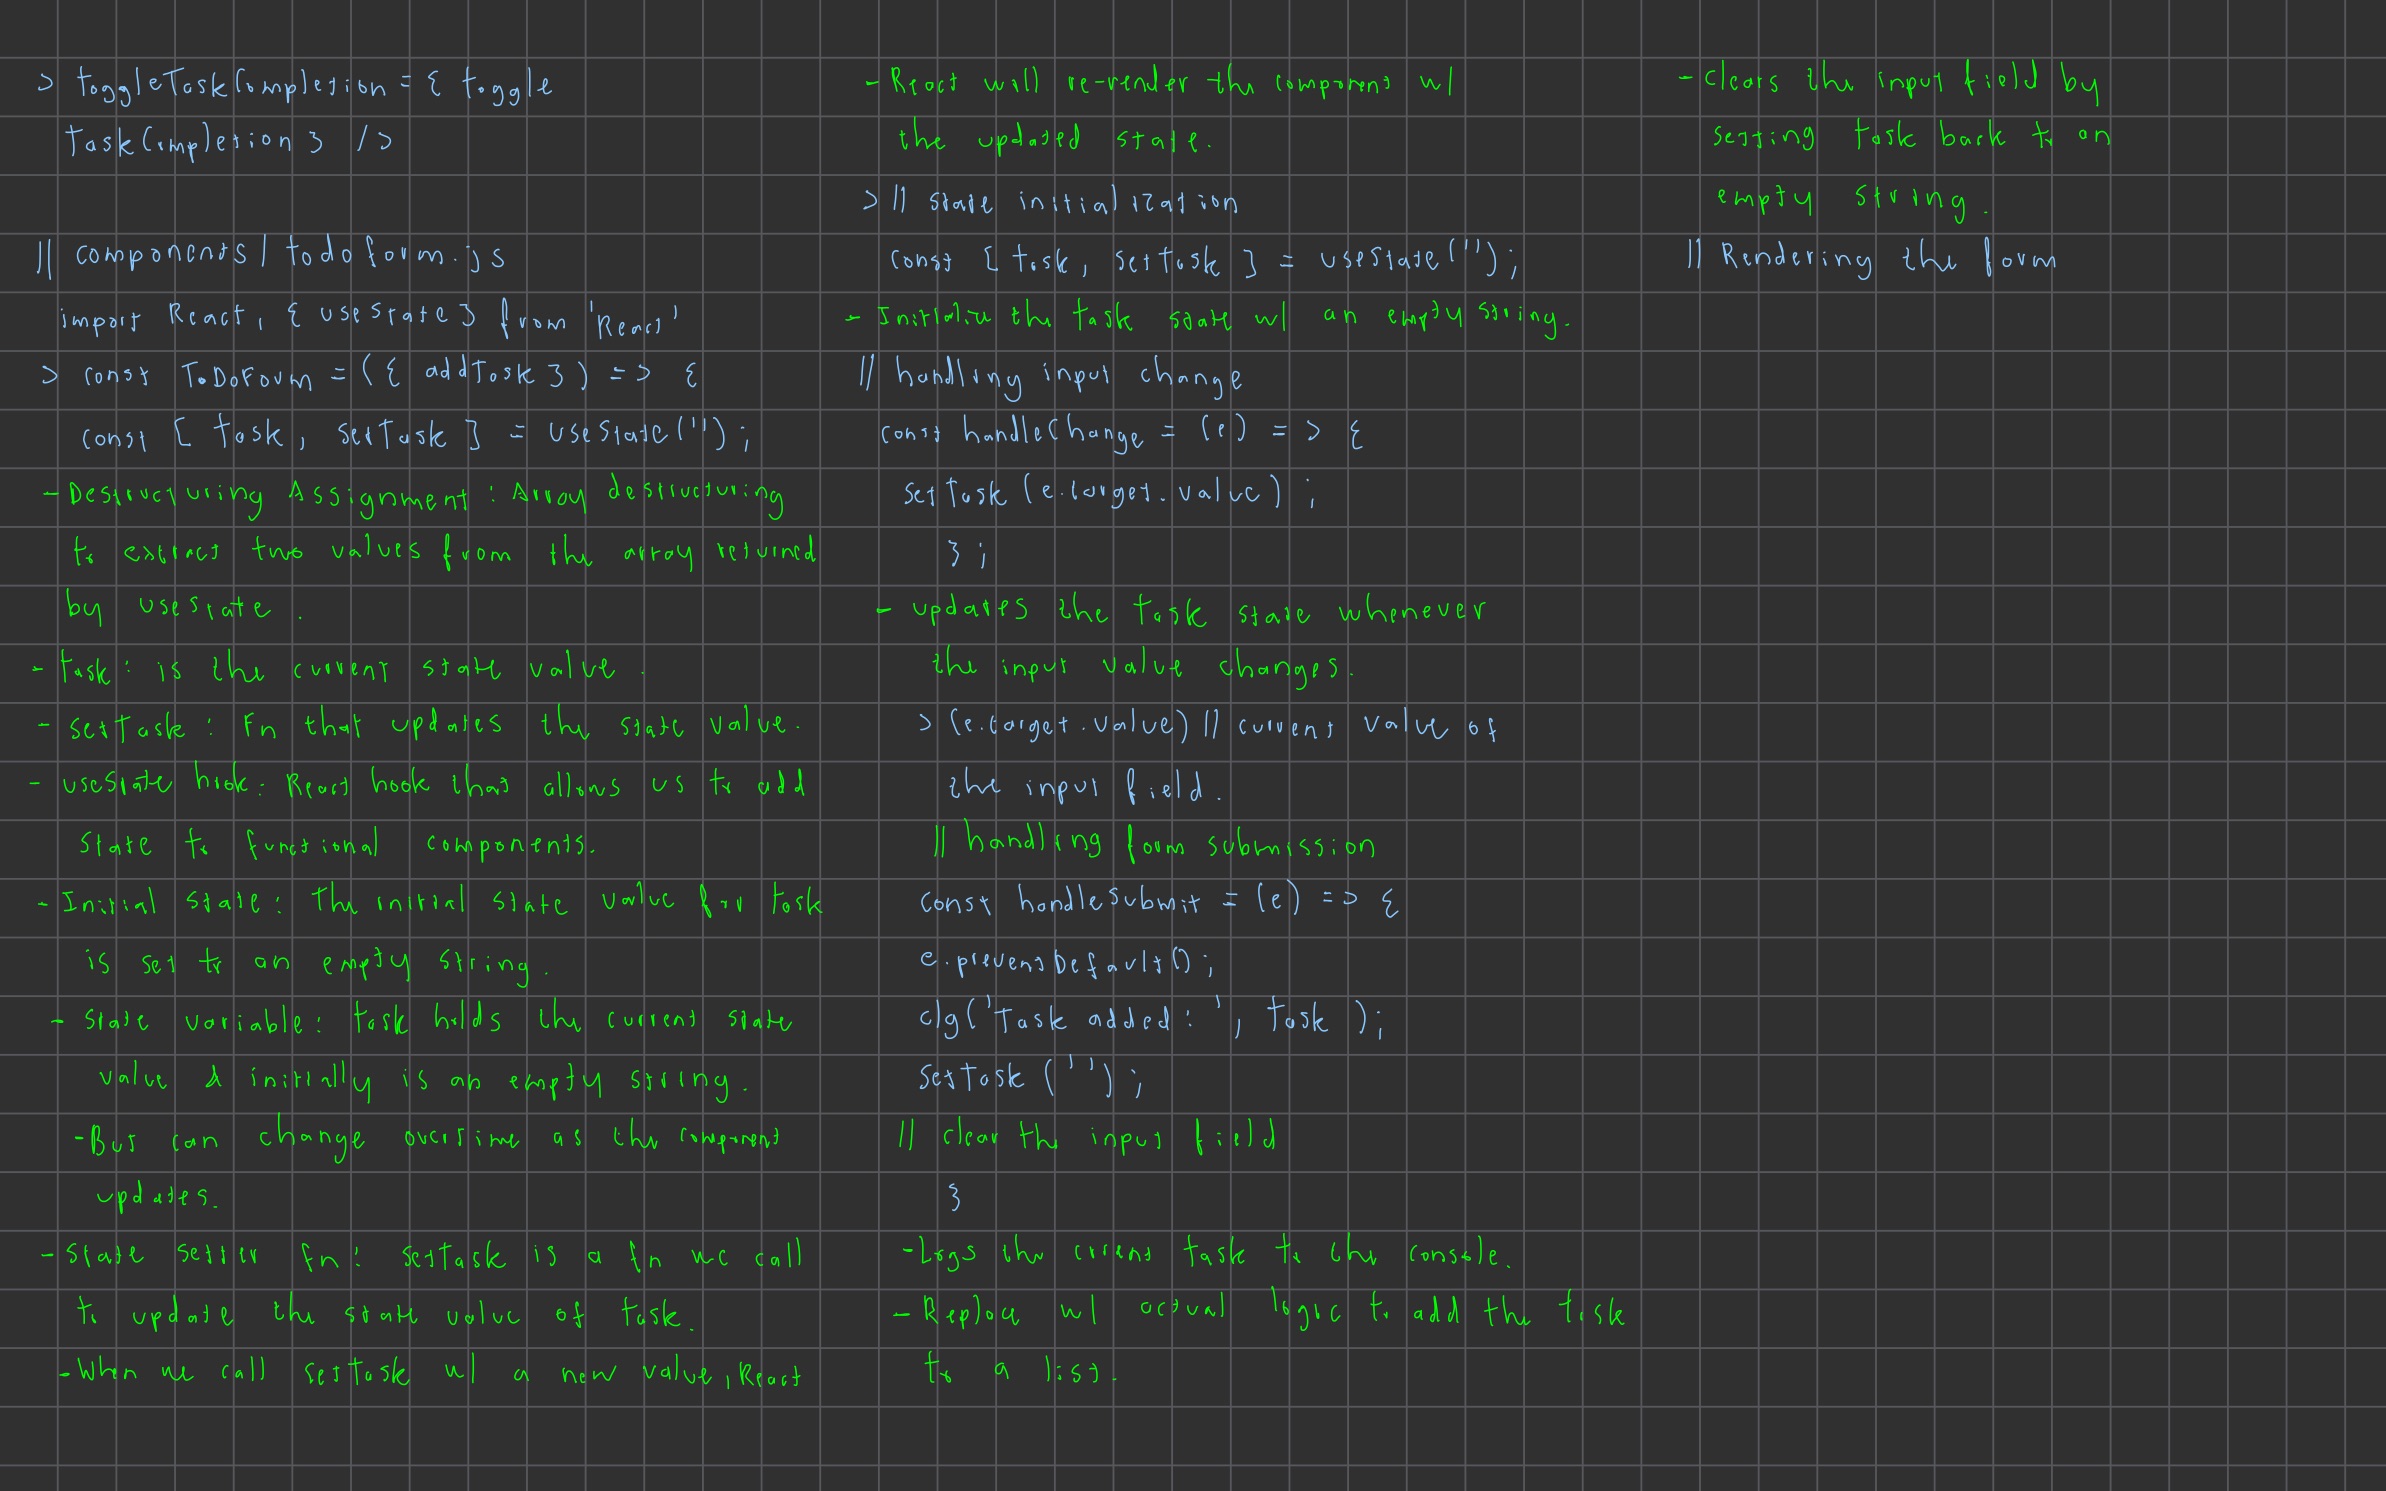 > toggleTaskCompletion = { toggle
TaskCompletion } />
// components / todoform.js
import React, { useState } from 'React'
> const ToDoForm = ({ addTask }) => {
const [ task, setTask ] = useState('');
- Destructuring Assignment : Array destructuring
to extract two values from the array returned
by usestate.
- task : is the current state value.
- setTask : Fn that updates the state value.
- useState hook : React hook that allows us to add
state to functional components.
- Initial state : The initial state value for task
is set to an empty string.
- State variable : task holds the current state
value & initially is an empty string.
- But can change overtime as the component
updates.
- State setter fn : setTask is a fn we call
to update the state value of task.
- When we call setTask w/ a new value, React
- React will re-render the component w/
the updated state.
> // state initialization
const [ task, setTask ] = useState('');
- Initialize the task state w/ an empty string.
// handling input change
const handleChange = (e) => {
setTask (e.target.value) ;
} ;
- updates the task state whenever
the input value changes.
> (e.target.value) // current value of
the input field.
// handling form submission
const handleSubmit = (e) => {
e.preventDefault();
clg('Task added: ', task );
setTask ('');
// clear the input field
}
- Logs the crrent task to the console.
- Replace w/ actual logic to add the task
to a list.
- clears the input field by
setting task back to an
empty string.
// Rendering the form